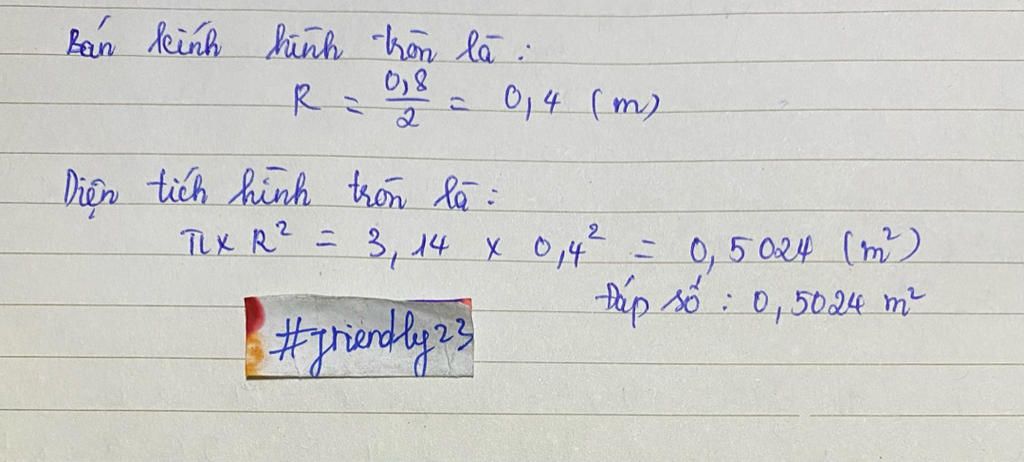 Bán kính hình tròn là :
R = 0,8/2 = 0,4 (m)
Diện tích hình tròn là :
π x R² = 3,14 x 0,4² = 0,5024 (m²)
Đáp số : 0,5024 m²
#friendly23